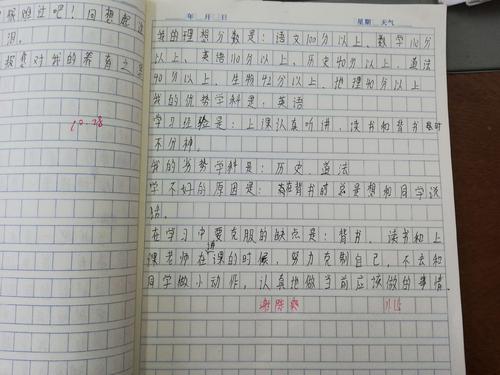 探的过吧！回想起这
泪。
报意对我的养育之
10.28
年 月 日 星期 天气
我的理想分数是：语文100分以上、数学110分
以上、英语110分以上、历史40分以上、道法
40分以上、生物42分以上、地理40分以上
我的优势学科是：英语
学习经验是：上课认真听讲，读书和背书时
不分神。
我的劣势学科是：历史、道法
学不好的原因是：在背书时总是想和同学说
话。
在学习中要克服的缺点是：背书、读书和上
课老师在讲课的时候，努力克制自己，不去和
同学做小动作，认真地做当前应该做的事情。